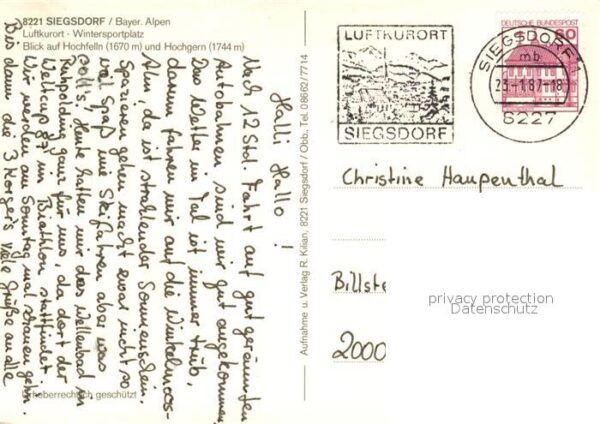 8221 SIEGSDORF / Bayer. Alpen
Luftkurort · Wintersportplatz
Blick auf Hochfelln (1670 m) und Hochgern (1744 m)
Halli Hallo!
Nach 12 Std. Fahrt auf gut geräumten
Autobahnen sind wir gut angekommen
Das Wetter im Tal ist immer trüb,
darum fahren wir auf die Winkelmoos-
Alm, da ist strahlender Sonnenschein.
Spazieren gehen macht zwar nicht so
viel Spaß wie Skifahren aber was
soll's. Heute hatten wir das Wellenbad in
Ruhpolding ganz für uns, da dort der
Weltcup 87 im Biathlon stattfindet.
Wir werden am Sonntag mal schauen gehn.
Bis dann die 3 Korger's viele Grüße an alle
Urheberrechtlich geschützt
Aufnahme u. Verlag R. Kilian, 8221 Siegsdorf / Obb., Tel. 08662/7714
LUFTKURORT
SIEGSDORF
DEUTSCHE BUNDESPOST
80
SIEGSDORF
mb
23.-1.87-18
8227
Christine Haupenthal
Billste
2000
privacy protection
Datenschutz